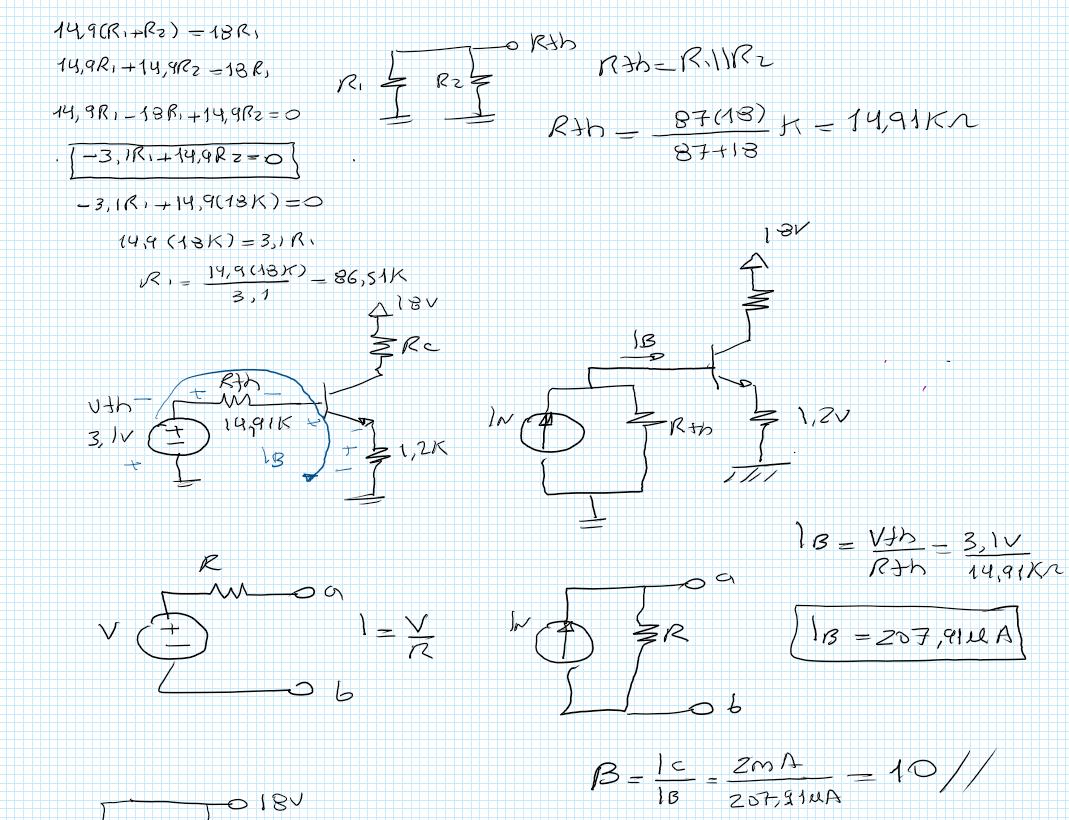 14,9(R1+R2) = 18R1
14,9R1 + 14,9R2 = 18R1
14,9R1 - 18R1 + 14,9R2 = 0
-3,1R1 + 14,9R2 = 0
-3,1R1 + 14,9(18K) = 0
14,9 (18K) = 3,1R1
R1 = 14,9(18K) / 3,1 = 86,51K
R1
R2
Rth
Rth = R1||R2
Rth = 87(18) / 87+18 K = 14,91KΩ
18V
Rc
Rth
+ -
Vth -
14,91K
3,1V
+
-
+
IB
+
-
+
-
1,2K
18V
IB
IN
Rth
1,2V
IB = Vth / Rth = 3,1V / 14,91KΩ
IB = 207,91µA
R
a
V
+
-
b
I = V / R
IN
R
a
b
B = Ic / IB = 2mA / 207,91µA = 10 //
18V